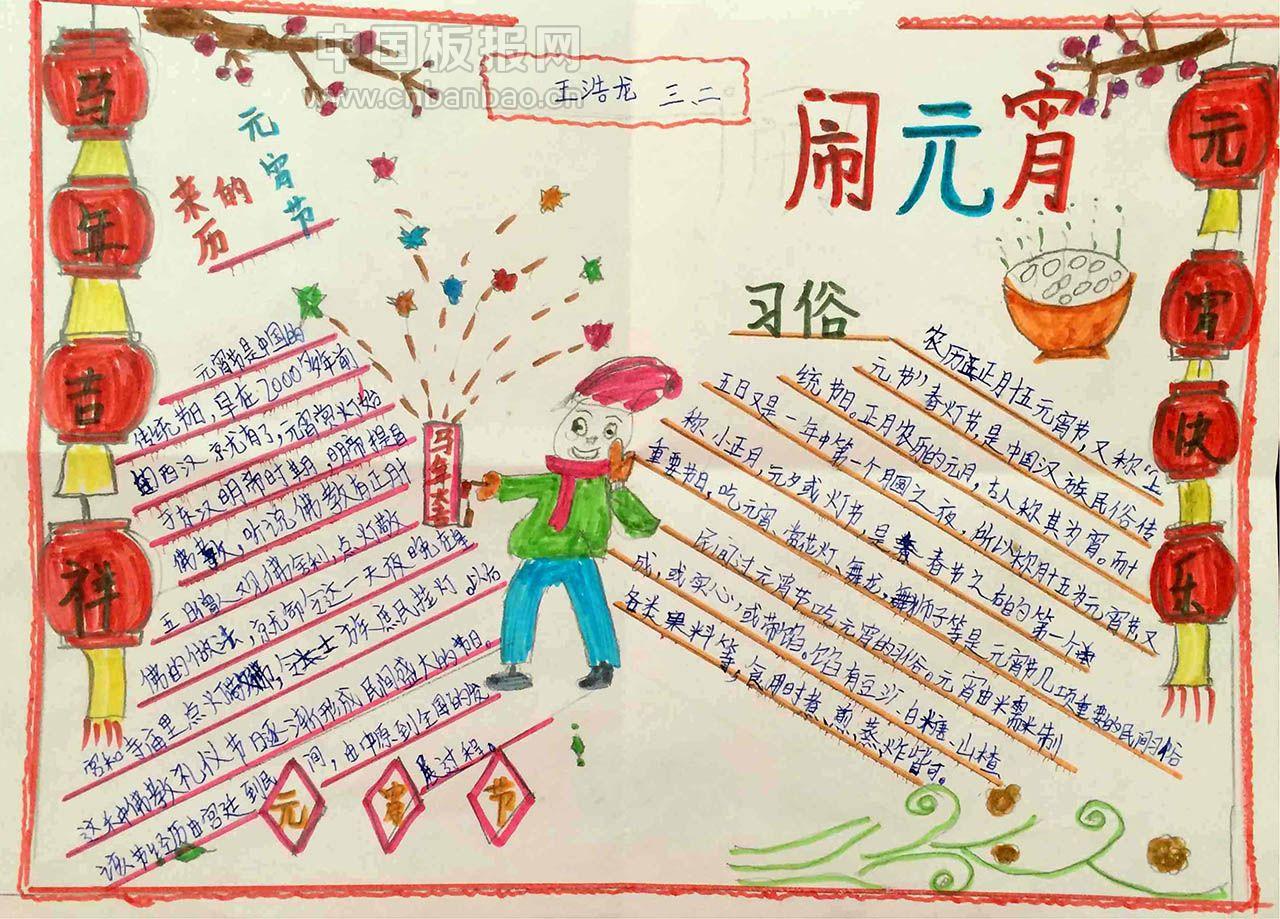 中国板报网
www.cnbanbao.cn
王浩龙 三、二
闹元宵
马年吉祥
元宵快乐
元宵节
的来历
元宵节是中国的
传统节日，早在2000多年前
西汉就有了，元宵赏灯始
于东汉明帝时期，明帝提昌
佛教，听说佛教有正月十
五日曾人观佛舍利，点灯敬
佛的做法，就命令这一天夜晚在皇
宫和寺庙里点火 令士族庶民挂灯 以后
这种佛教礼仪节日逐渐形成民间盛大的节日。
该节经历由宫廷到民间，由中原到全国的发
展过程。
马年大吉
元宵节
习俗
农历正月十五元宵节，又称"上
元节"春灯节，是中国汉族民俗传
统节日。正月农历的元月，古人称其为宵。而十
五日又是一年中第一个月圆之夜，所以称月十五为元宵节又
称小正月，元夕或灯节，是春节之右的第一个
重要节日，吃元宵、赏花灯、舞龙，舞狮子等是元宵节几项重要的民间习俗
民间过元宵节吃元宵的习俗。元宵由米需米制
成，或实心，或带馅。馅有豆沙、白糖、山楂
各类果料等，食用时煮、煎、蒸炸皆可。